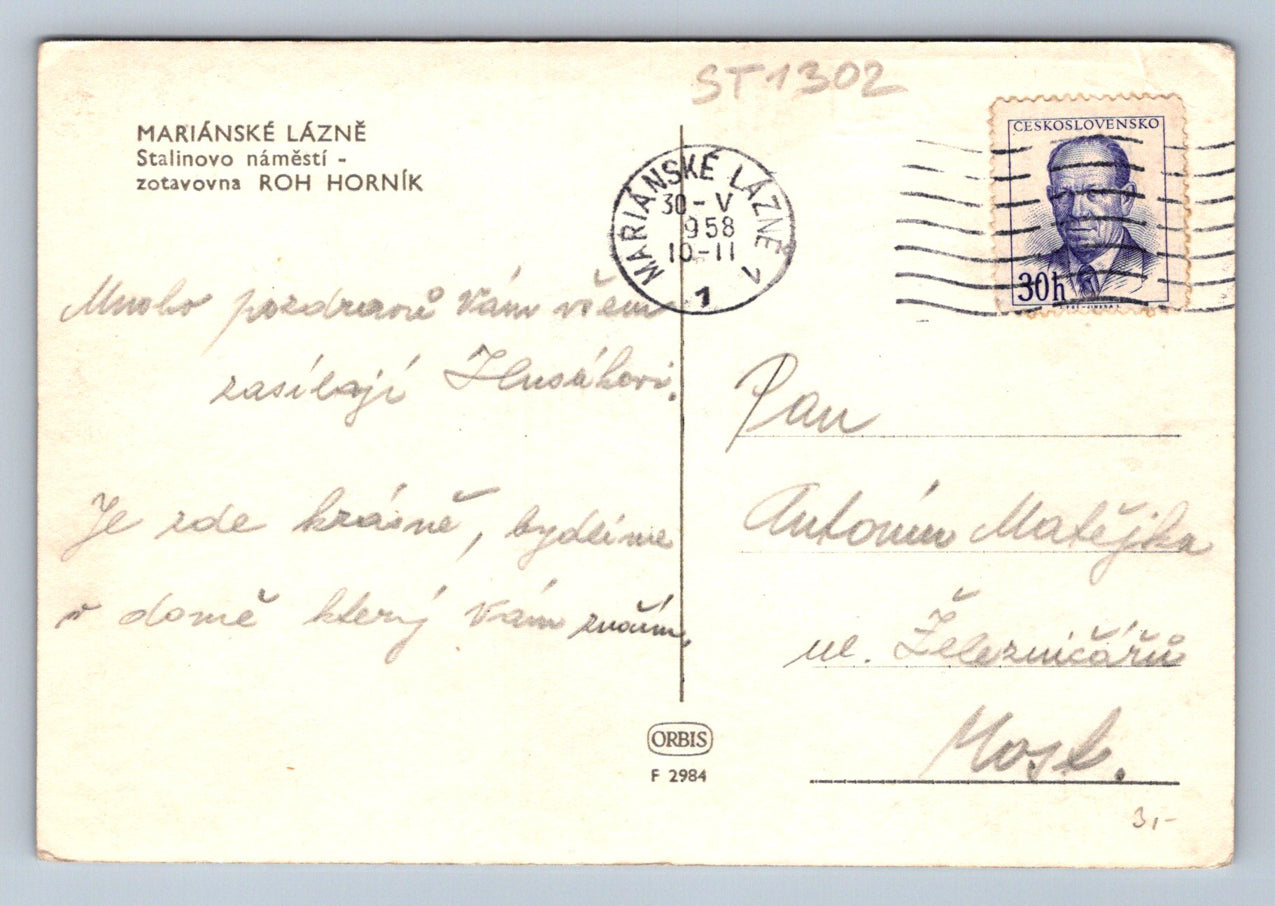 ST1302
MARIÁNSKÉ LÁZNĚ
Stalinovo náměstí -
zotavovna ROH HORNÍK
MARIÁNSKÉ LÁZNĚ 1
30-V
1958
10-11
1
ČESKOSLOVENSKO
30h
Mnoho pozdravů Vám všem
zasílají Husákovi.
Je zde krásně, bydlíme
v domě který Vám značím.
Pan
Antonín Matějka
ul. Železničářů
Most.
ORBIS
F 2984
3,-